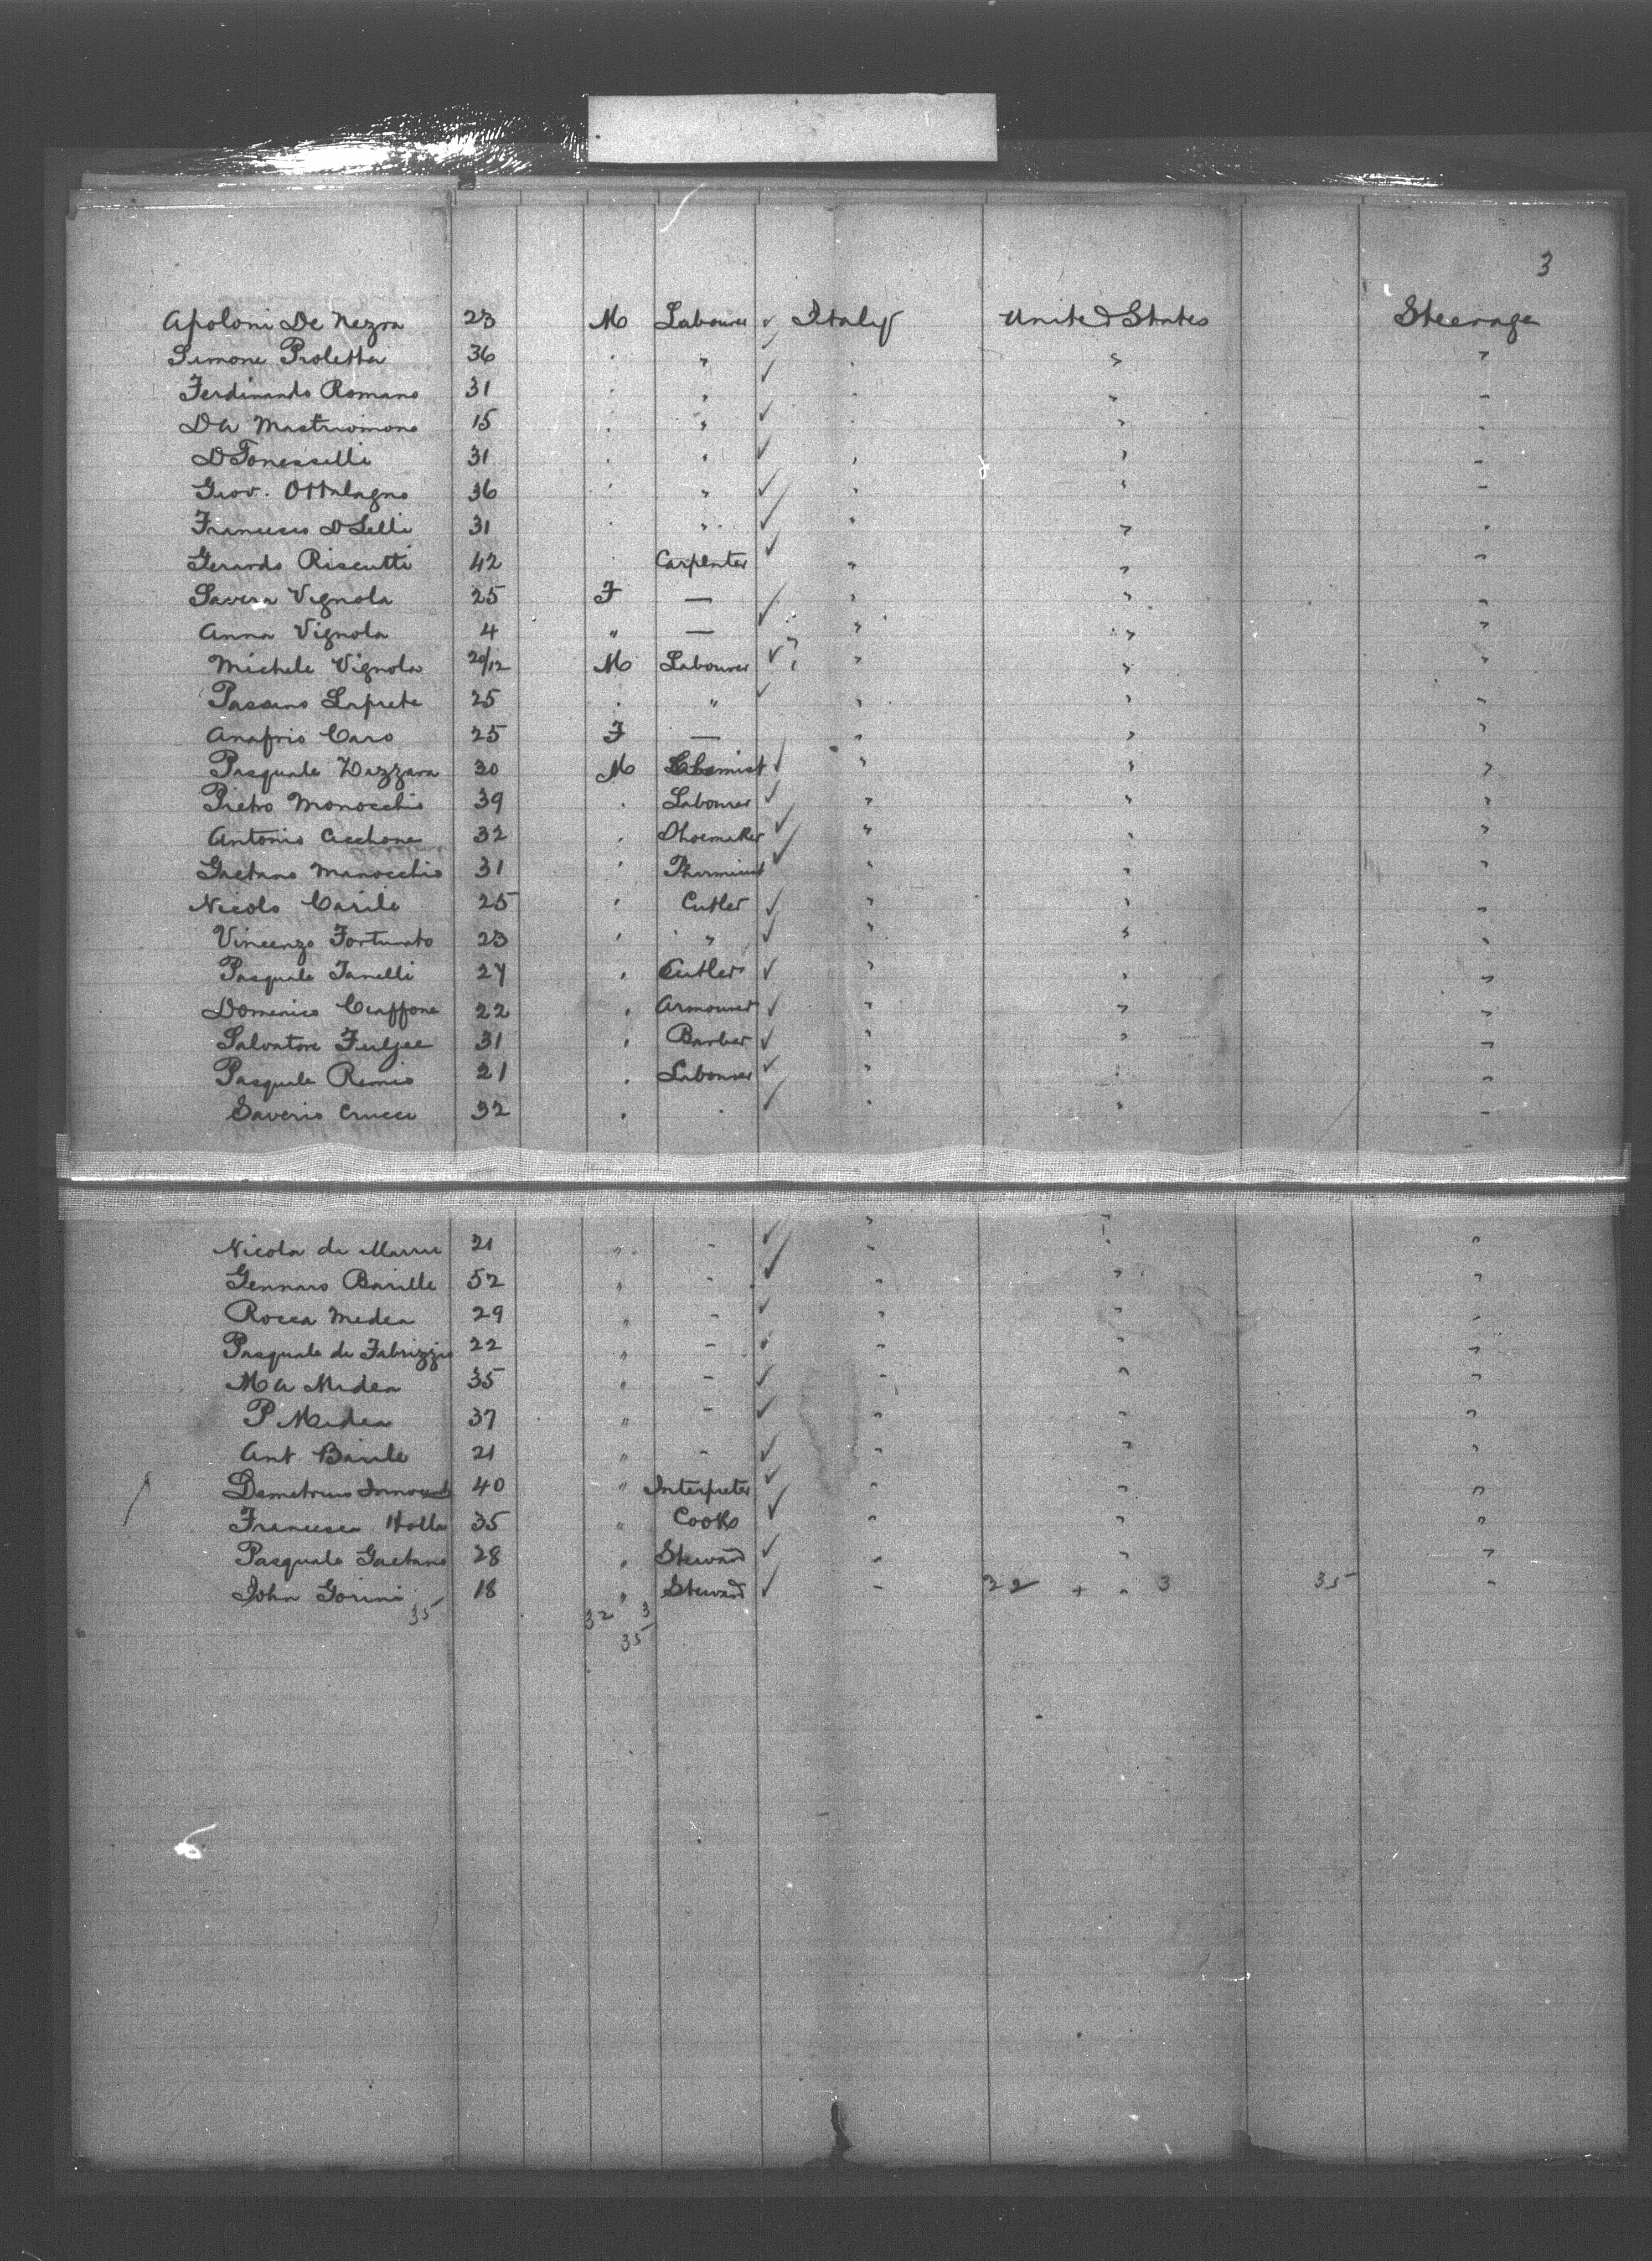 3
Apoloni De Nezra 23 M Labourer ✓ Italy United States Steerage
Simone Proletti 36 " " ✓ " " "
Ferdinando Romano 31 " " ✓ " " "
DA Mastriomono 15 " " ✓ " " "
D Tonesselli 31 " " ✓ " " "
Giov. Ottalagno 36 " " ✓ " " "
Francesco D Lelli 31 " " ✓ " " "
Gerardo Riscutti 42 " Carpenter ✓ " " "
Savera Vignola 25 F — ✓ " " "
Anna Vignola 4 " — " " "
Michele Vignola 20/12 M Labourer ✓ " " "
Passano Laprete 25 " " ✓ " " "
Anafrio Caro 25 F — " " "
Pasquale Dazzara 30 M Chemist ✓ " " "
Pietro Monocchio 39 " Labourer ✓ " " "
Antonio Cicchone 32 " Shoemaker ✓ " " "
Gaetano Manocchio 31 " Pharmicist ✓ " " "
Nicolo Carile 25 " Cutler ✓ " " "
Vincenzo Fortunato 23 " " ✓ " " "
Pasquale Janelli 27 " Cutler ✓ " " "
Domenico Ciaffone 22 " Armourer ✓ " " "
Salvatore 31 " Barber ✓ " " "
Pasquale Remio 21 " Labourer ✓ " " "
Saverio Crucci 32 " " ✓ " " "
Nicola di 21 " " ✓ " " "
Gennaro Barille 52 " " ✓ " " "
Rocca Medea 29 " " ✓ " " "
Pasquale di Fabrizzio 22 " " ✓ " " "
M A Medea 35 " " ✓ " " "
P Medea 37 " " ✓ " " "
Ant Barile 21 " " ✓ " " "
Demetrius 40 " Interpreter ✓ " " "
Francesco Holla 35 " Cook ✓ " " "
Pasquale Gaetano 28 " Steward ✓ " " "
John Gorini 18 " Steward ✓ " 32 + " 3 35 "
35 32 3
35